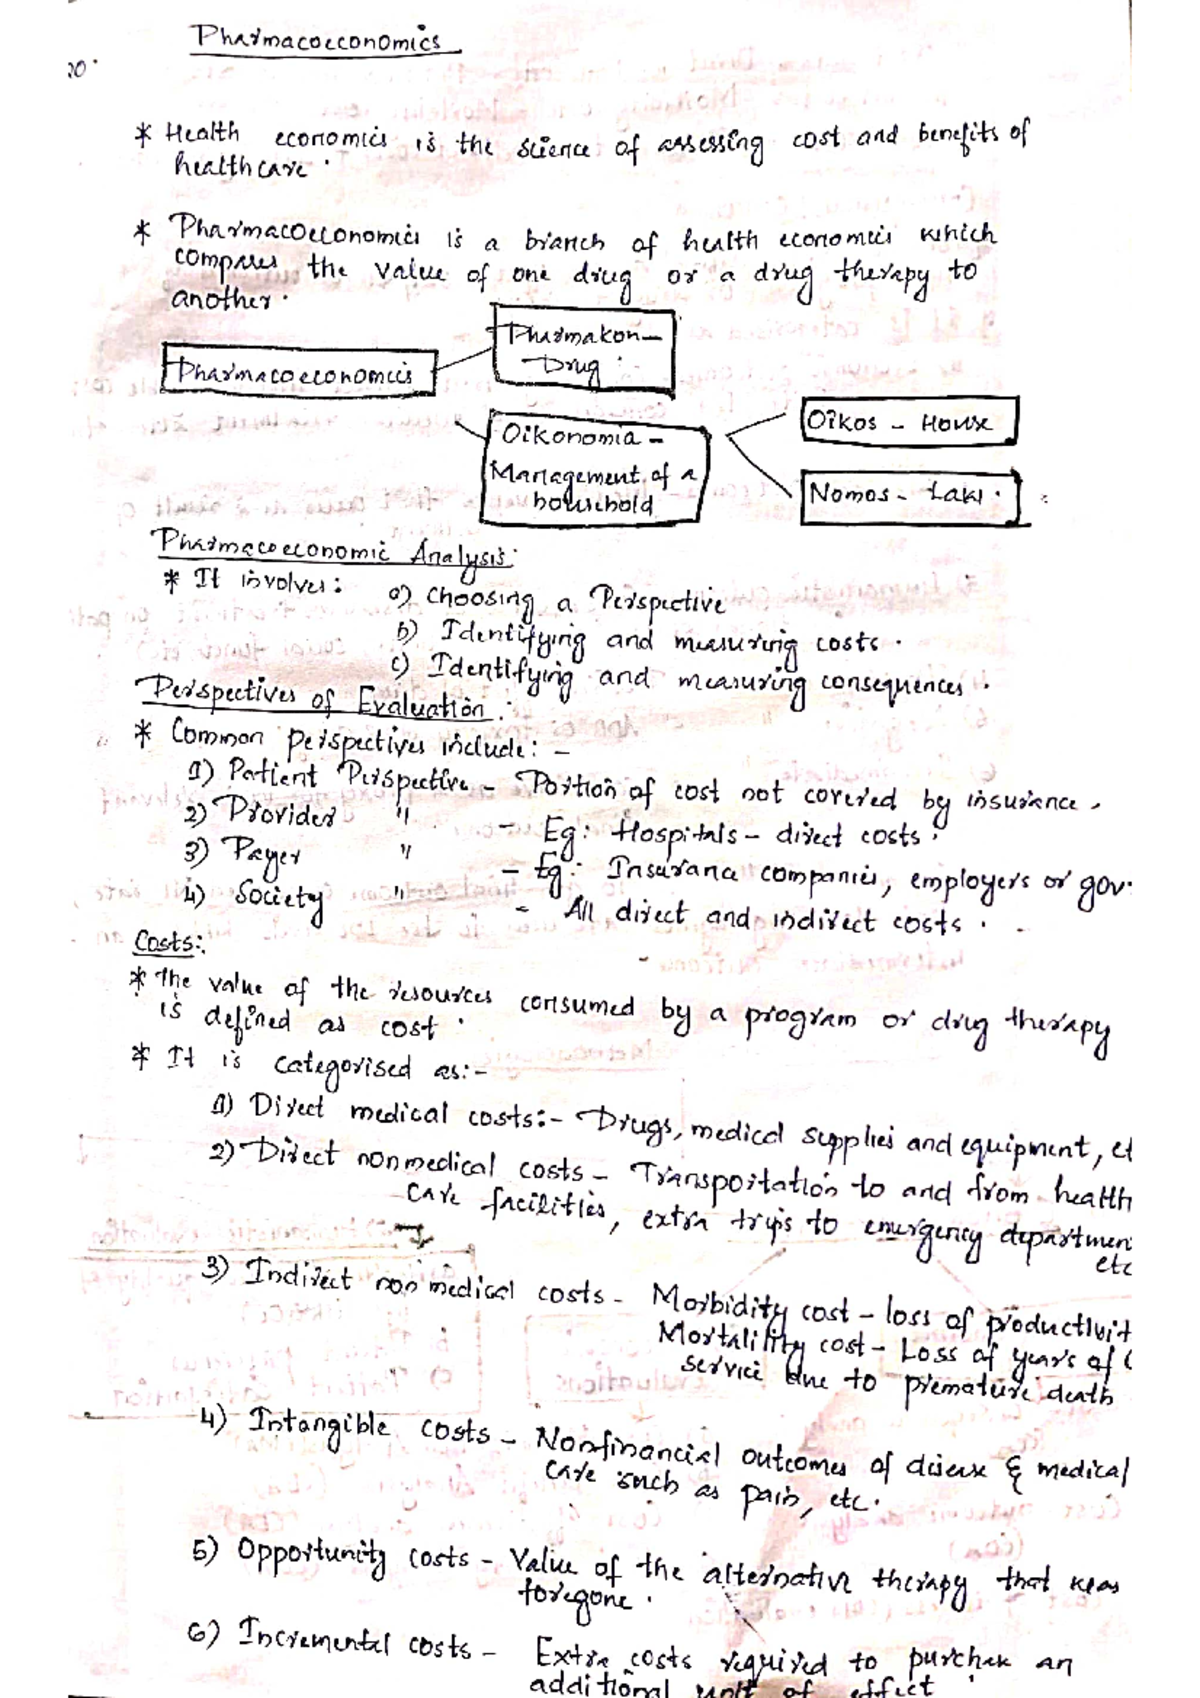 Pharmacoeconomics
20.
* Health economics is the science of assessing cost and benefits of
healthcare.
* Pharmacoeconomics is a branch of health economics which
compares the value of one drug or a drug therapy to
another.
Pharmacoeconomics
Pharmakon-
Drug.
Oikonomia -
Management of a
household
Oikos - House
Nomos - Law.
Pharmacoeconomic Analysis:
* It involves: a) Choosing a Perspective
b) Identifying and measuring costs.
c) Identifying and measuring consequences.
Perspectives of Evaluation:
* Common perspectives include: -
1) Patient Perspective - Portion of cost not covered by insurance.
2) Provider " - Eg: Hospitals - direct costs.
3) Payer " - Eg: Insurance companies, employers or gov
4) Society " - All direct and indirect costs.
Costs:
* The value of the resources consumed by a program or drug therapy
is defined as cost.
* It is categorised as:-
1) Direct medical costs:- Drugs, medical supplies and equipment, et
2) Direct nonmedical costs - Transportation to and from health
care facilities, extra trips to emergency departmen
etc
3) Indirect nonmedical costs - Morbidity cost - loss of productivit
Mortalility cost - Loss of years of
service due to premature death
4) Intangible costs - Nonfinancial outcomes of disease & medical
care such as pain, etc.
5) Opportunity costs - Value of the alternative therapy that was
foregone.
6) Incremental costs - Extra costs required to purchase an
additional unit of effect.